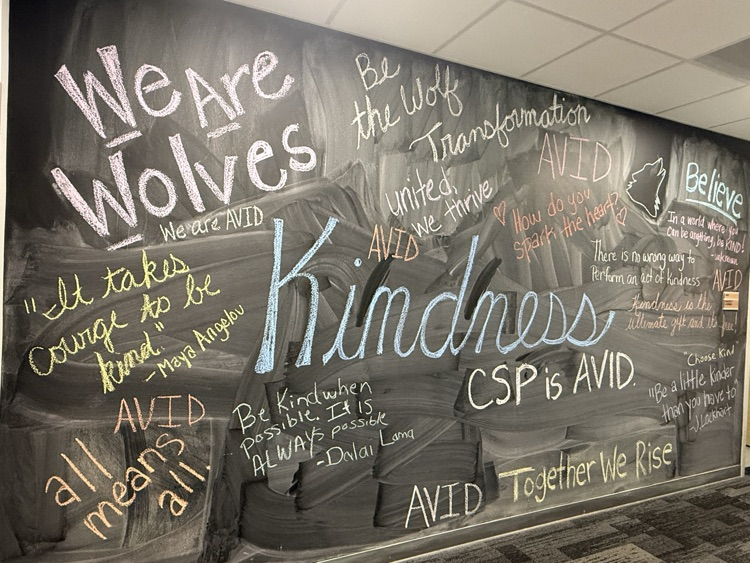 We Are
Wolves
We are AVID
Be
the Wolf
Transformation
united,
we thrive
AVID
AVID
How do you
spark the heart?
Believe
In a world where you
can be anything, be KIND!
-unknown
There is no wrong way to
Perform an act of kindness
AVID
Kindness is the
ultimate gift and its free!
"It takes
courge to be
kind."
-Maya Angelou
Kindness
CSP is AVID.
"Choose Kind
"Be a little kinder
than you have to"
-J. Lockhart
AVID
all
means
all.
Be Kind when
possible. It is
ALWAYS possible
-Dalai Lama
AVID
Together We Rise